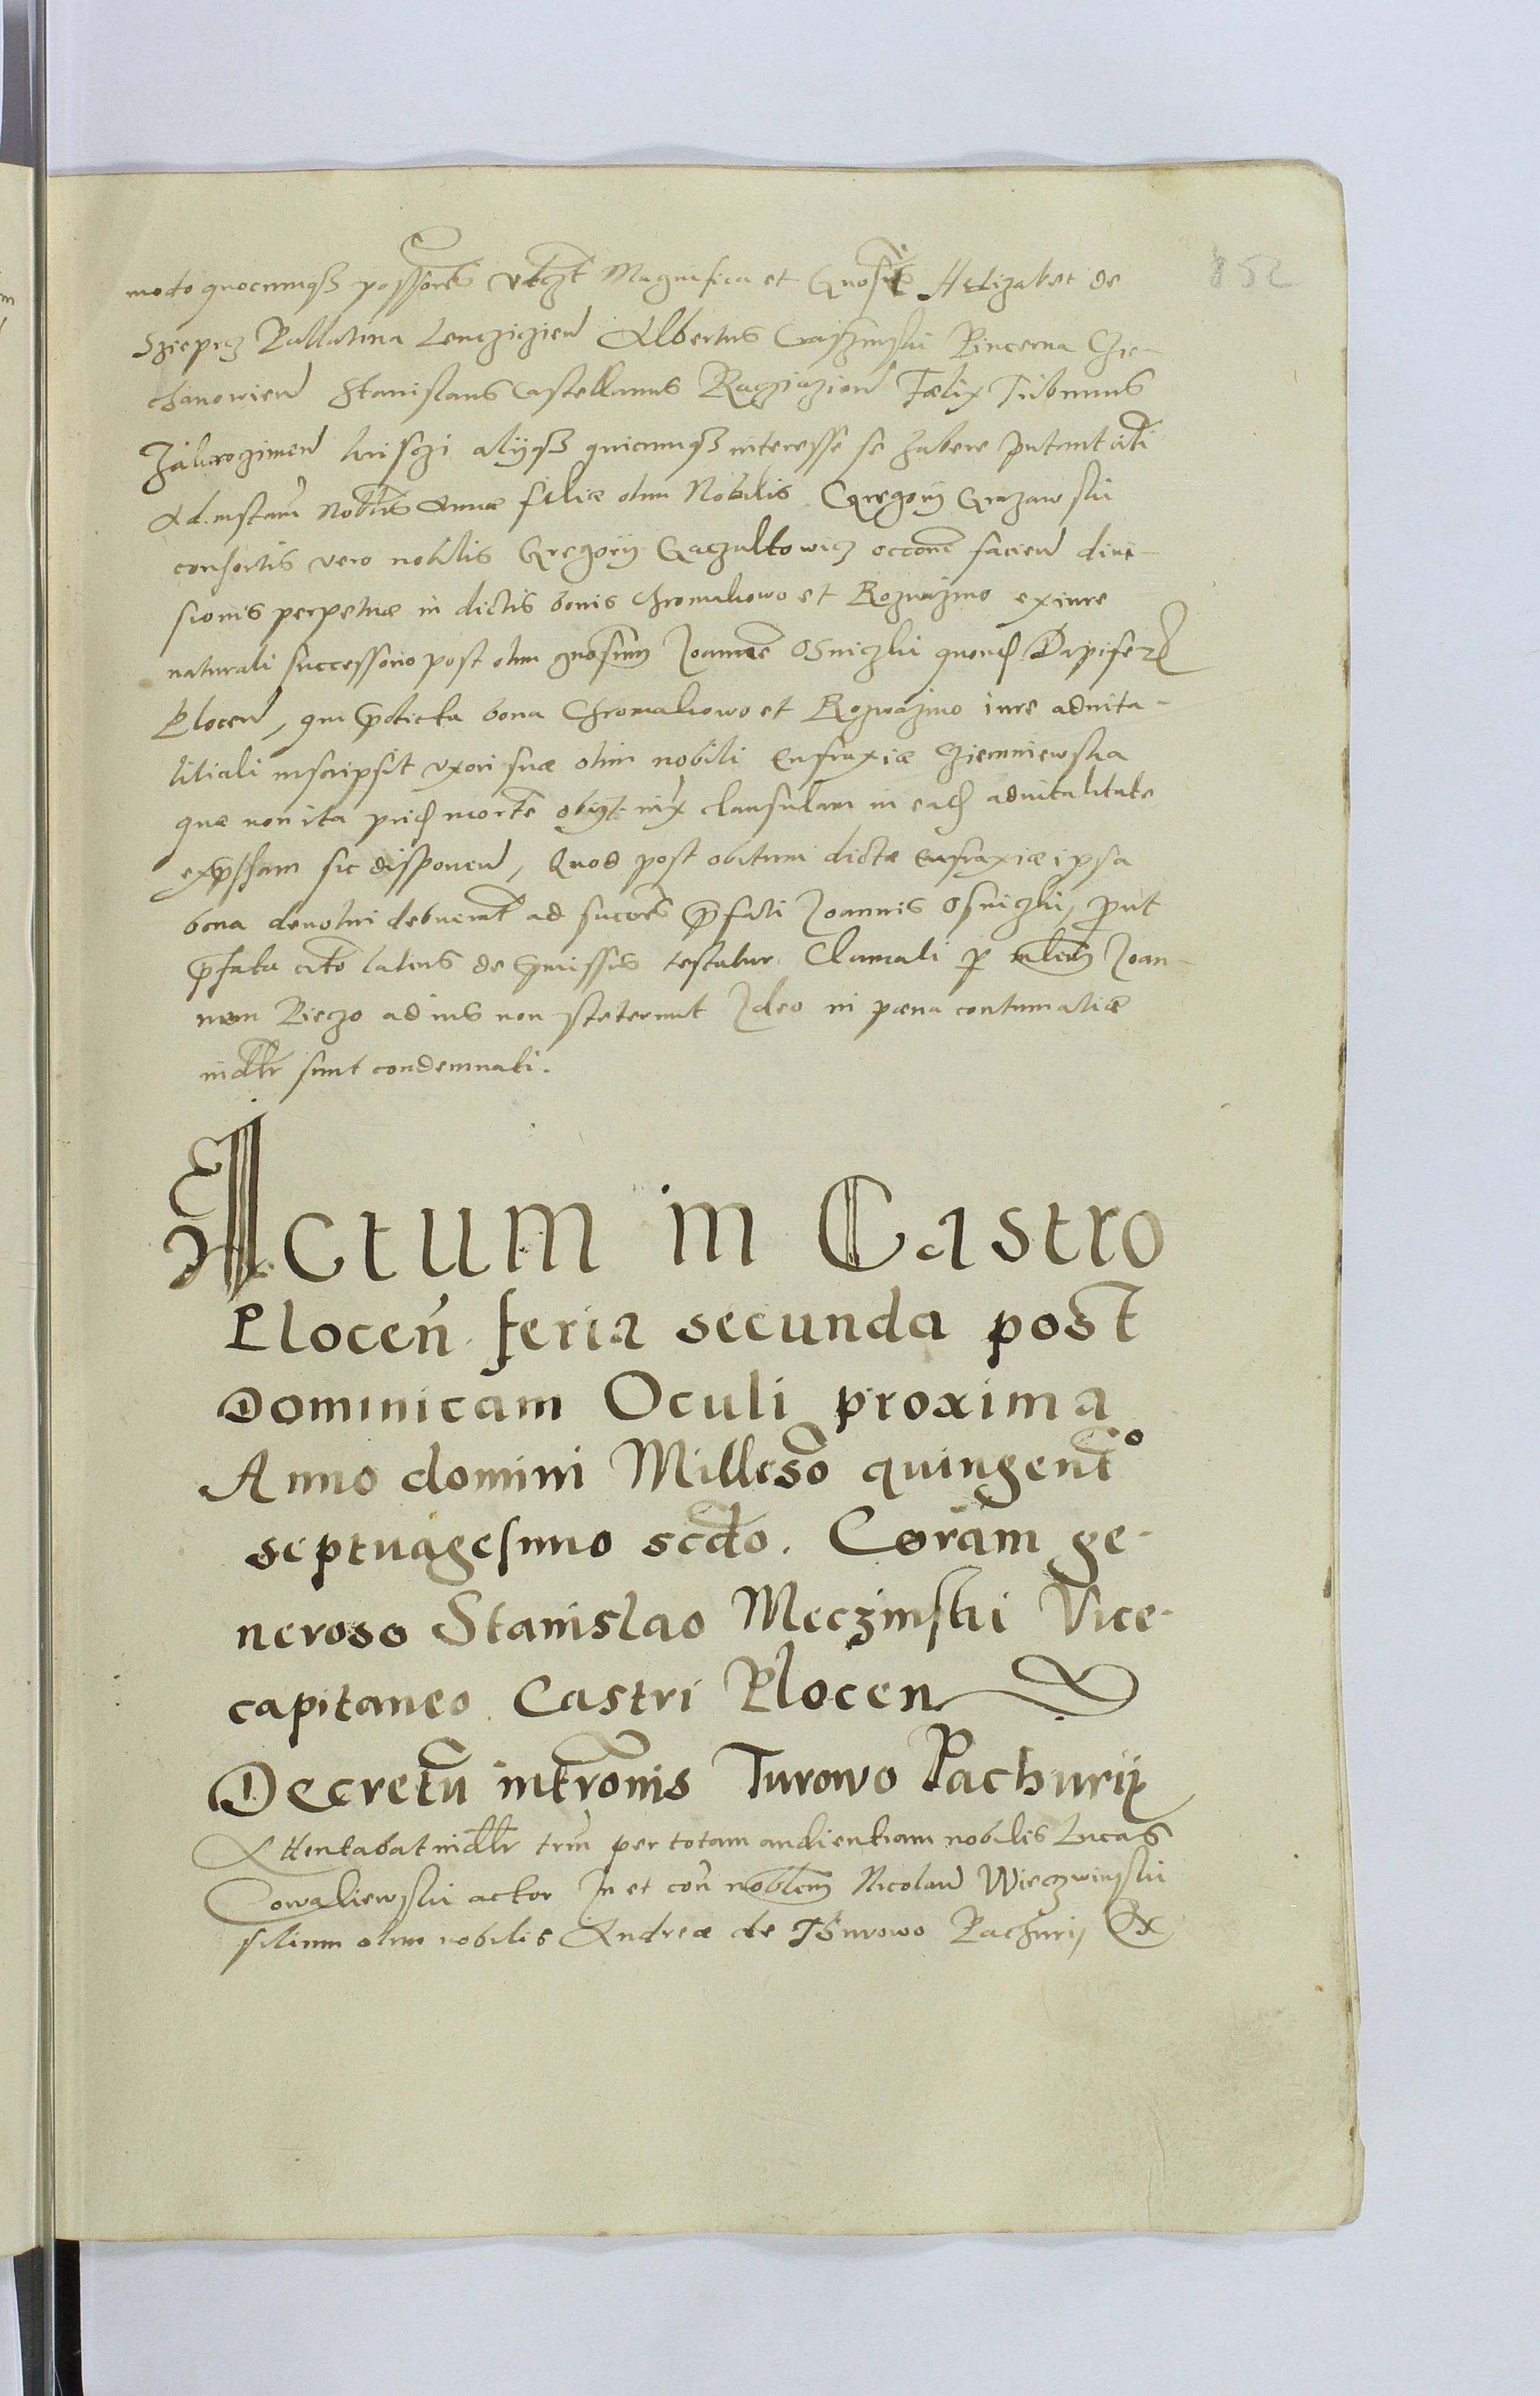 852
modo quocumqȝ possores vtczt Magnifica et Gnosi Helizabet de
Szieprcz Pallatina Lenczicien Albertus Gasczinski Pincerna Czie-
chanowien Stanislaus Castellanus Racziazien Fælix Tribunus
Zakroczimen Krisczi alijqȝ quicumqȝ interesse se habere putant citati
Ad instam nobilis Annæ filiæ olim Nobilis Gregorij
consortis vero nobilis Gregorij Gaczultowicz occone facien divi-
sionis perpetuæ in dictis bonis Chromakowo et Rozwazino ex iure
naturali successorio post olim gnosum Joannē Osniczki quond Dapifer
Plocen, qui p̄dicta bona Chromakowo et Rozwazino iure advita-
litiali inscripsit vxori suæ olim nobili Eufraxiæ Gziemniewska
quæ non ita prid mortē obijt iux clausulam in ead advitalitate
exp̄ssam sic disponen, Quod post obitum dictæ Eufraxiæ ipsa
bona devolvi debuerunt ad succores p̄fati Joannis Osniczki, prout
p̄fata cito latius de p̄missis testatur Clamati p mlem Joan-
nem Bieczo ad ius non steterunt Ideo in pæna contumatiæ
indltr sunt condemnati.
Actum in Castro
Plocen feria secunda post
Dominicam Oculi proxima
Anno domini Milleso quingent°
septuagesimo scdo. Coram ge-
neroso Stanislao Meczinski Vice-
capitaneo Castri Plocen
Decretū intronis Turowo Pachurij
Attentabat indltr trm per totam audientiam nobilis Lucas
Cowaliewski actor In et con noblem Nicolaum Wieczwinski
filium olim nobilis Andreæ de Thurowo Pachurij Ex